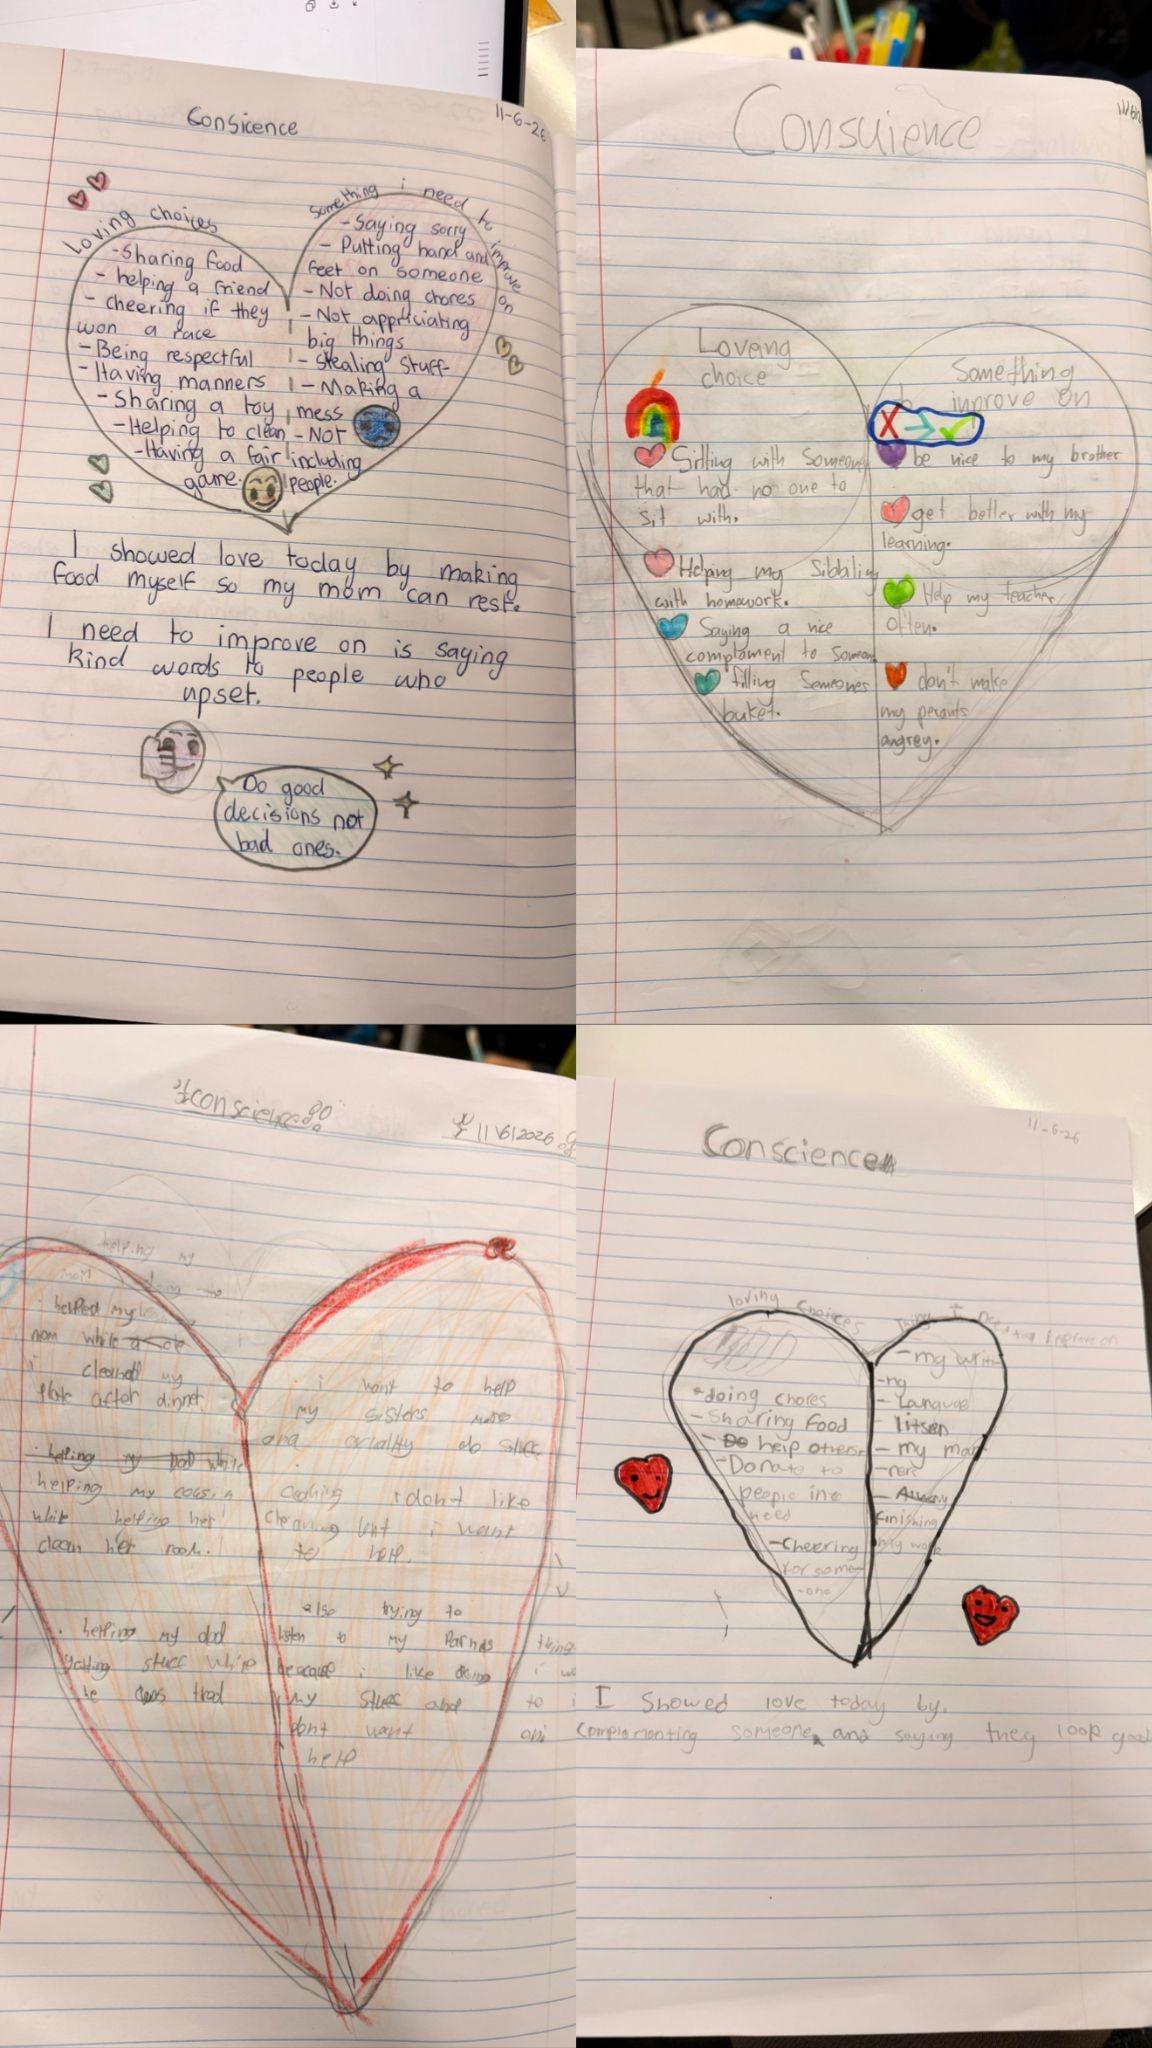 Consicence
11-6-26
Loving choices
-Sharing food
- helping a friend
- cheering if they
won a race
-Being respectful
-Having manners
-Sharing a toy
-Helping to clean
-Having a fair
game.
Something i need to improve on
-Saying sorry
- Putting hand and
feet on someone
-Not doing chores
-Not appriciating
big things
-Stealing stuff-
-Making a
mess
-Not
including
people.
I showed love today by making
food myself so my mom can rest.
I need to improve on is saying
kind words to people who
upset.
Do good
decisions not
bad ones.
Consuience
Loveing
choice
Sitting with Someone
that has no one to
sit with.
Helping my Sibbling
with homework.
Saying a nice
complament to someone
filling Someones
buket.
Something
improve on
be nice to my brother
get better with my
learning.
Help my teacher
often.
don't make
my perants
angrey.
conscience
11/6/2026
helping my
mom
helped my
mom while
i cleaned my
plate after dinner
helping my dad while
helping my cousin
while helping her
clean her room.
helping my dad
getting stuff while
he
i want to help
my sisters more
and actally do stuff
i dont like
cleaning but i want
to help.
also trying to
listen to my Parnts
because i like doing
my stuff and
dont want
help
Conscience
11-6-26
loving choices
-doing chores
-Sharing Food
-Do help others
-Donate to
people in
need
-Cheering
for some-
-one
thing I need to improve on
-my writi
-ng
- Language
- litsen
- my man
-ners
-
finishing
my work
I Showed love today by.
Complamenting someone, and saying they look good